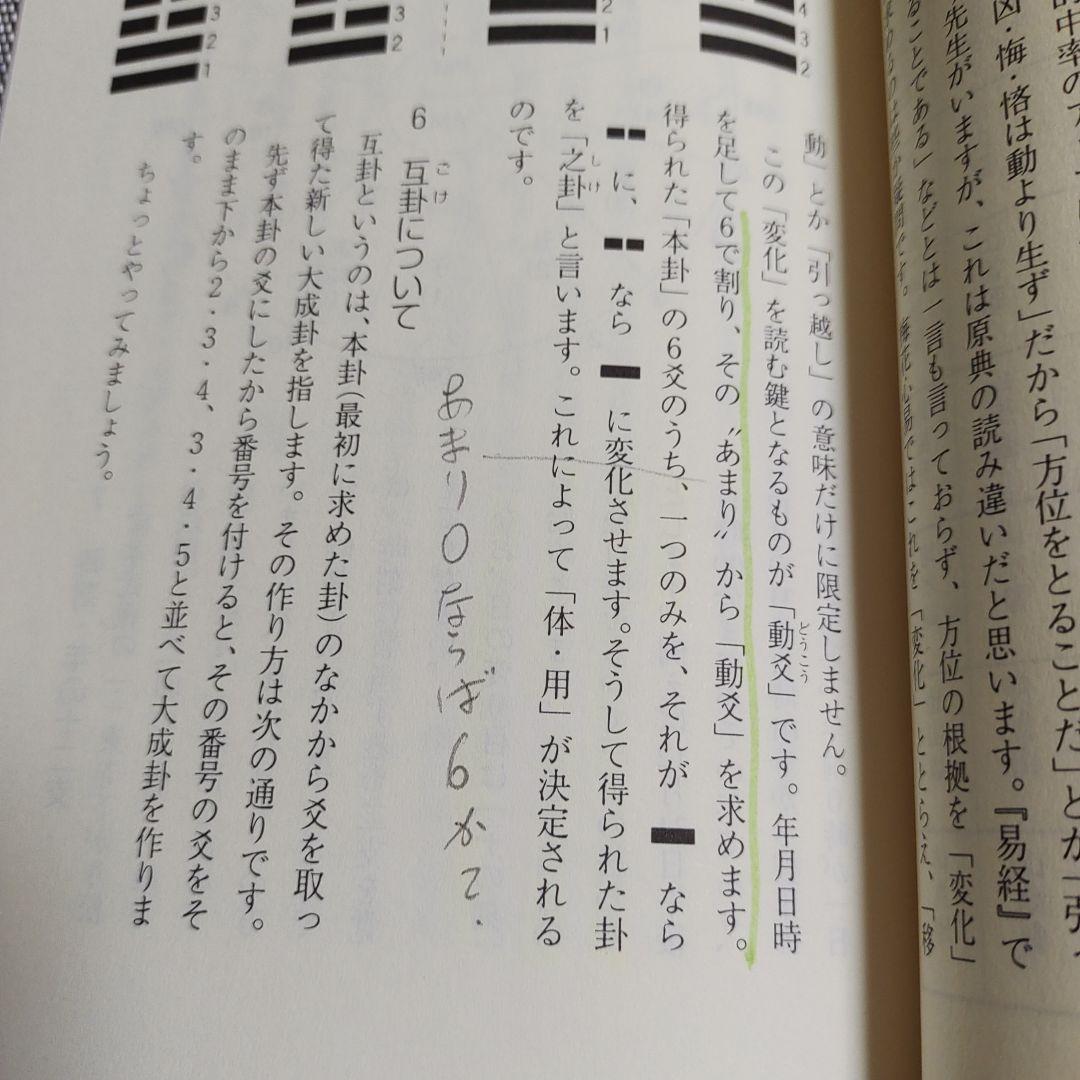 的中率の
凶・悔・悋は動より生ず」だから「方位をとることだ」とか「引っ
先生がいますが、これは原典の読み違いだと思います。『易経』で
ることである」などとは一言も言っておらず、方位の根拠を「変化」
梅花心易ではこれを「変化」ととらえ、「移
動」とか「引っ越し」の意味だけに限定しません。
この「変化」を読む鍵となるものが「動爻」です。年月日時
どうこう
を足して6で割り、その〝あまり〟から「動爻」を求めます。
得られた「本卦」の6爻のうち、一つのみを、それが ▬ なら
╍ に、╍ なら ▬ に変化させます。そうして得られた卦
を「之卦」と言います。これによって「体・用」が決定される
しけ
のです。
あまり0ならば6かて.
6 互卦について
ごけ
互卦というのは、本卦(最初に求めた卦)のなかから爻を取っ
て得た新しい大成卦を指します。その作り方は次の通りです。
先ず本卦の爻にしたから番号を付けると、その番号の爻をそ
のまま下から2・3・4、3・4・5と並べて大成卦を作りま
す。
ちょっとやってみましょう。
4
3
2
2
1
3
2
3
2
1